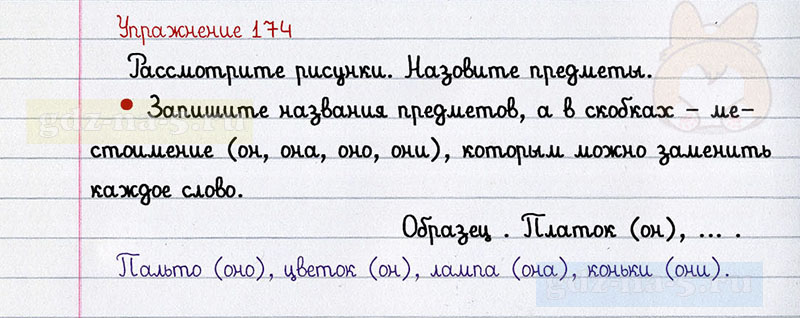 Упражнение 174
Рассмотрите рисунки. Назовите предметы.
• Запишите названия предметов, а в скобках – ме-
стоимение (он, она, оно, они), которым можно заменить
каждое слово.
Образец . Платок (он), ... .
Пальто (оно), цветок (он), лампа (она), коньки (они).
gdz-na-5.ru
gdz-na-5.ru